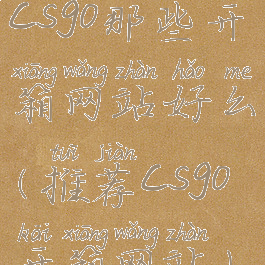 csgo那些开
xiāng wǎng zhàn hǎo me
箱网站好么
tuī jiàn
(推荐csgo
kāi xiāng wǎng zhàn
开箱网站)